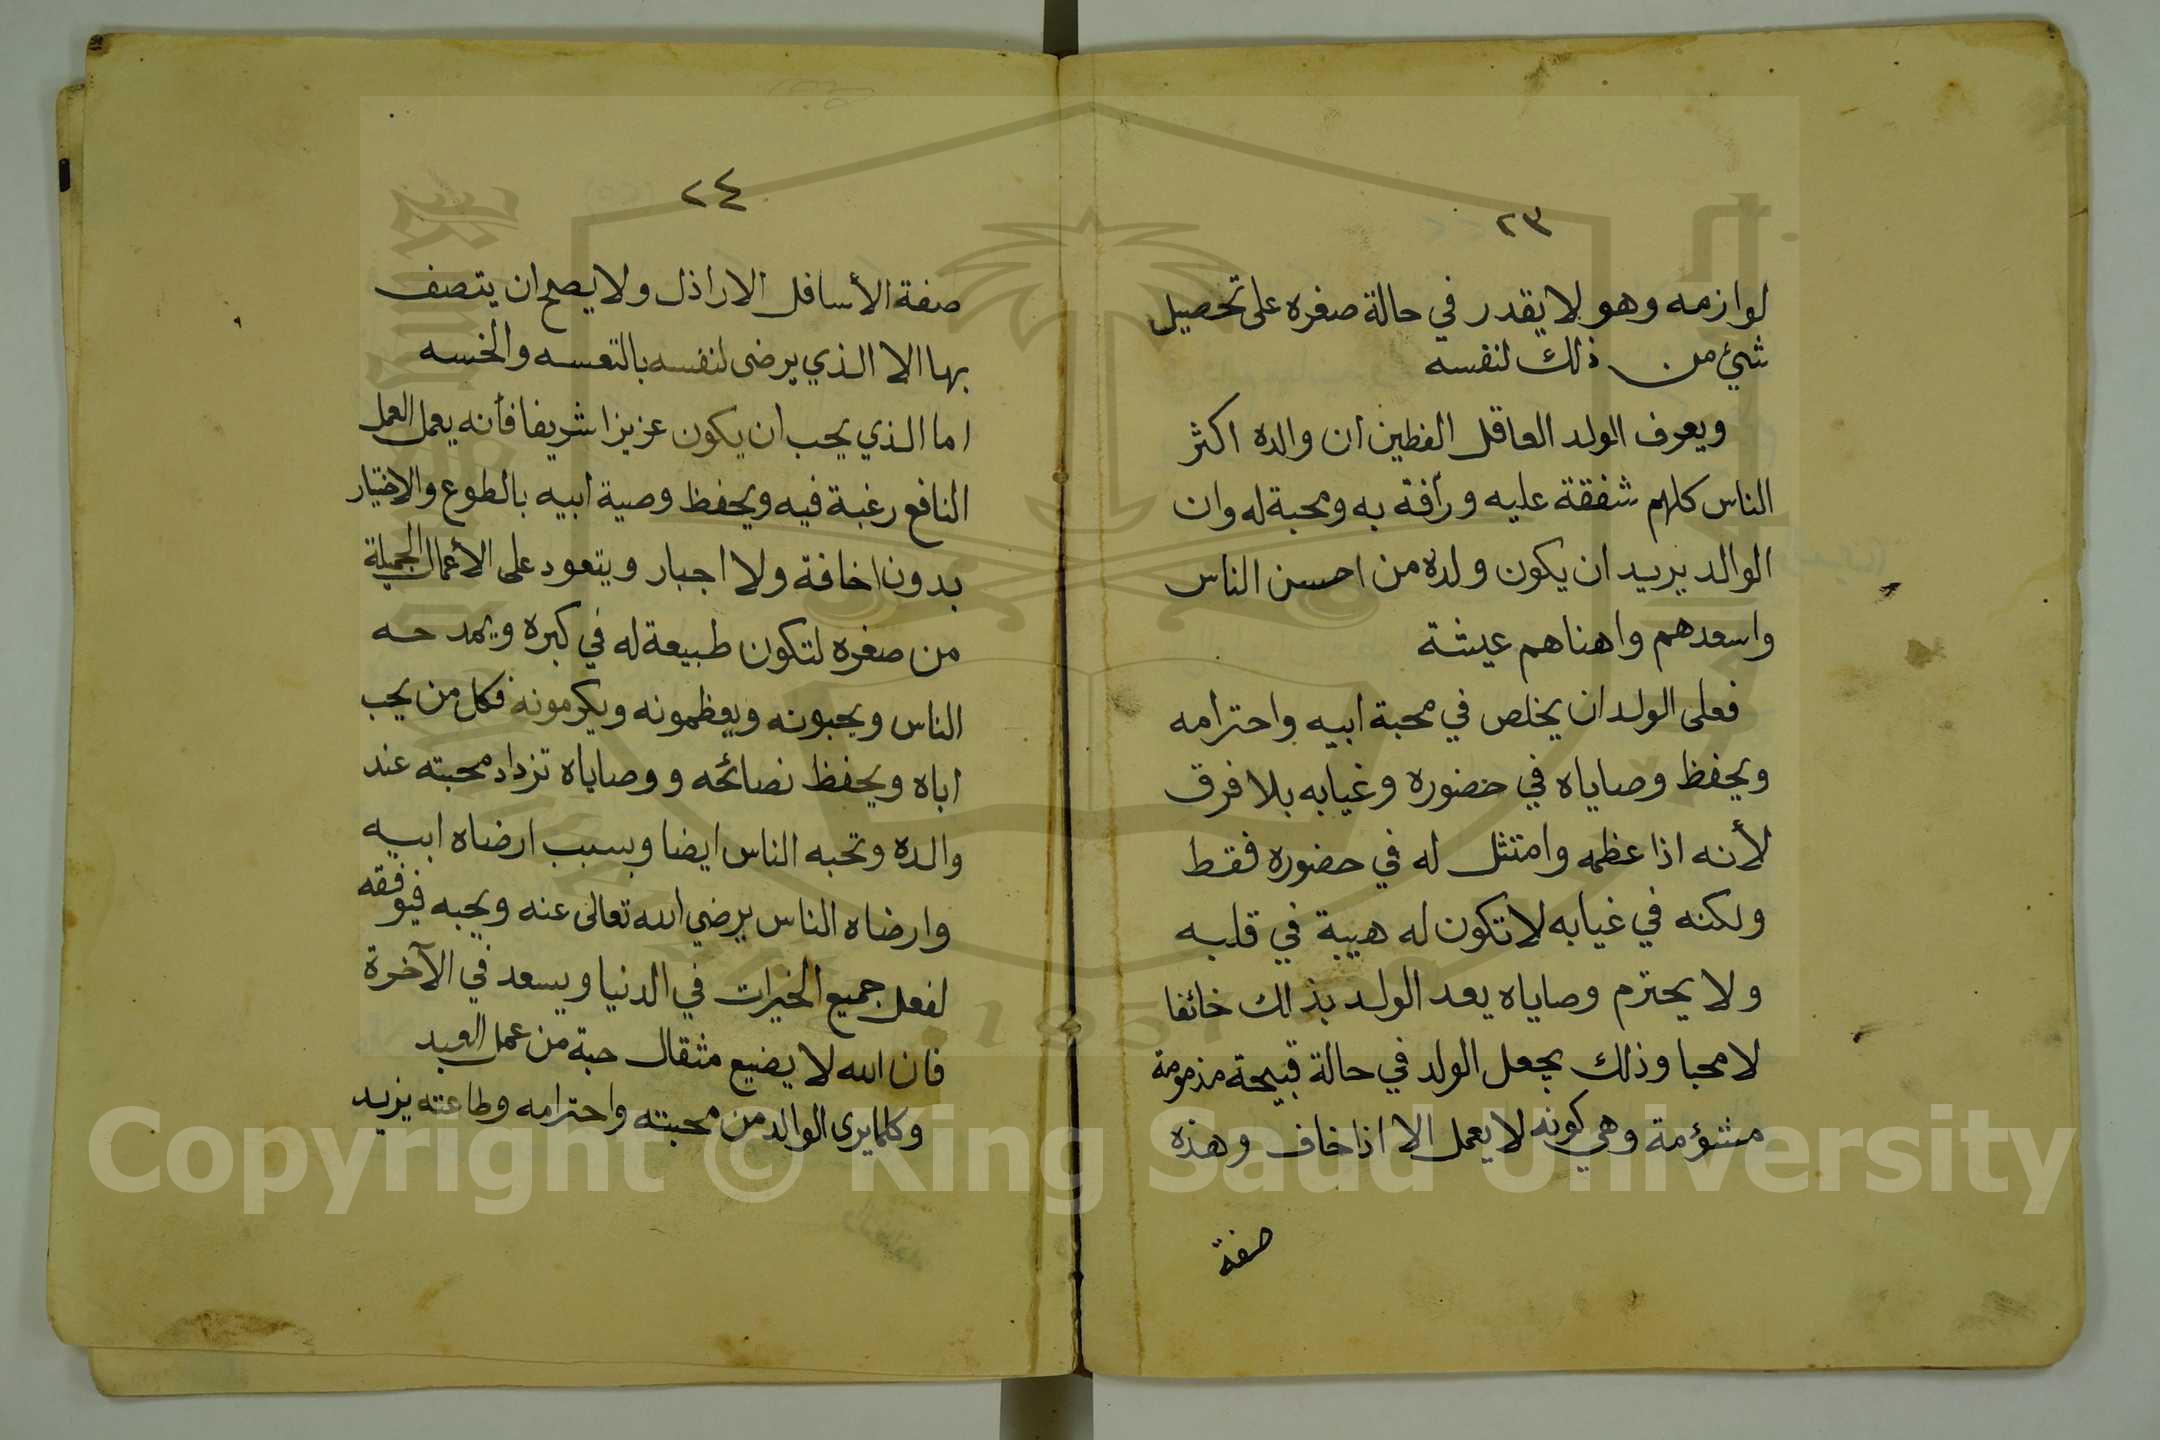 ٢٣
لوازمه وهو لا يقدر في حالة صغره على تحصيل
شيء من ذلك لنفسه
ويعرف الولد العاقل الفطين ان والده اكثر
الناس كلهم شفقة عليه ورأفة به ومحبة له وان
الوالد يريد ان يكون ولده من احسن الناس
واسعدهم واهناهم عيشة
فعلى الولد ان يخلص في محبة ابيه واحترامه
ويحفظ وصاياه في حضوره وغيابه بلا فرق
لأنه اذا عظمه وامتثل له في حضوره فقط
ولكنه في غيابه لا تكون له هيبة في قلبه
ولا يحترم وصاياه يعد الولد بذلك خائفا
لا محبا وذلك يجعل الولد في حالة قبيحة مذمومة
مشؤمة وهي كونه لا يعمل الا اذا خاف وهذه
صفة
٢٤
صفة الأسافل الاراذل ولا يصلح ان يتصف
بها الا الذي يرضى لنفسه بالتعسه والخسه
اما الذي يحب ان يكون عزيزا شريفا فأنه يعمل العمل
النافع رغبة فيه ويحفظ وصية ابيه بالطوع والاختيار
بدون اخافة ولا اجبار ويتعود على الأعمال الجميلة
من صغره لتكون طبيعة له في كبره ويمدحه
الناس ويحبونه ويعظمونه ويكرمونه فكل من يحب
اباه ويحفظ نصائحه ووصاياه تزداد محبته عند
والده وتحبه الناس ايضا وبسبب ارضاه ابيه
وارضاه الناس يرضي الله تعالى عنه ويحبه فيوفقه
لفعل جميع الخيرات في الدنيا ويسعد في الآخرة
فان الله لا يضيع مثقال حبة من عمل العبد
وكلما يرى الوالد من محبته واحترامه وطاعته يزيد
1957
Copyright © King Saud University